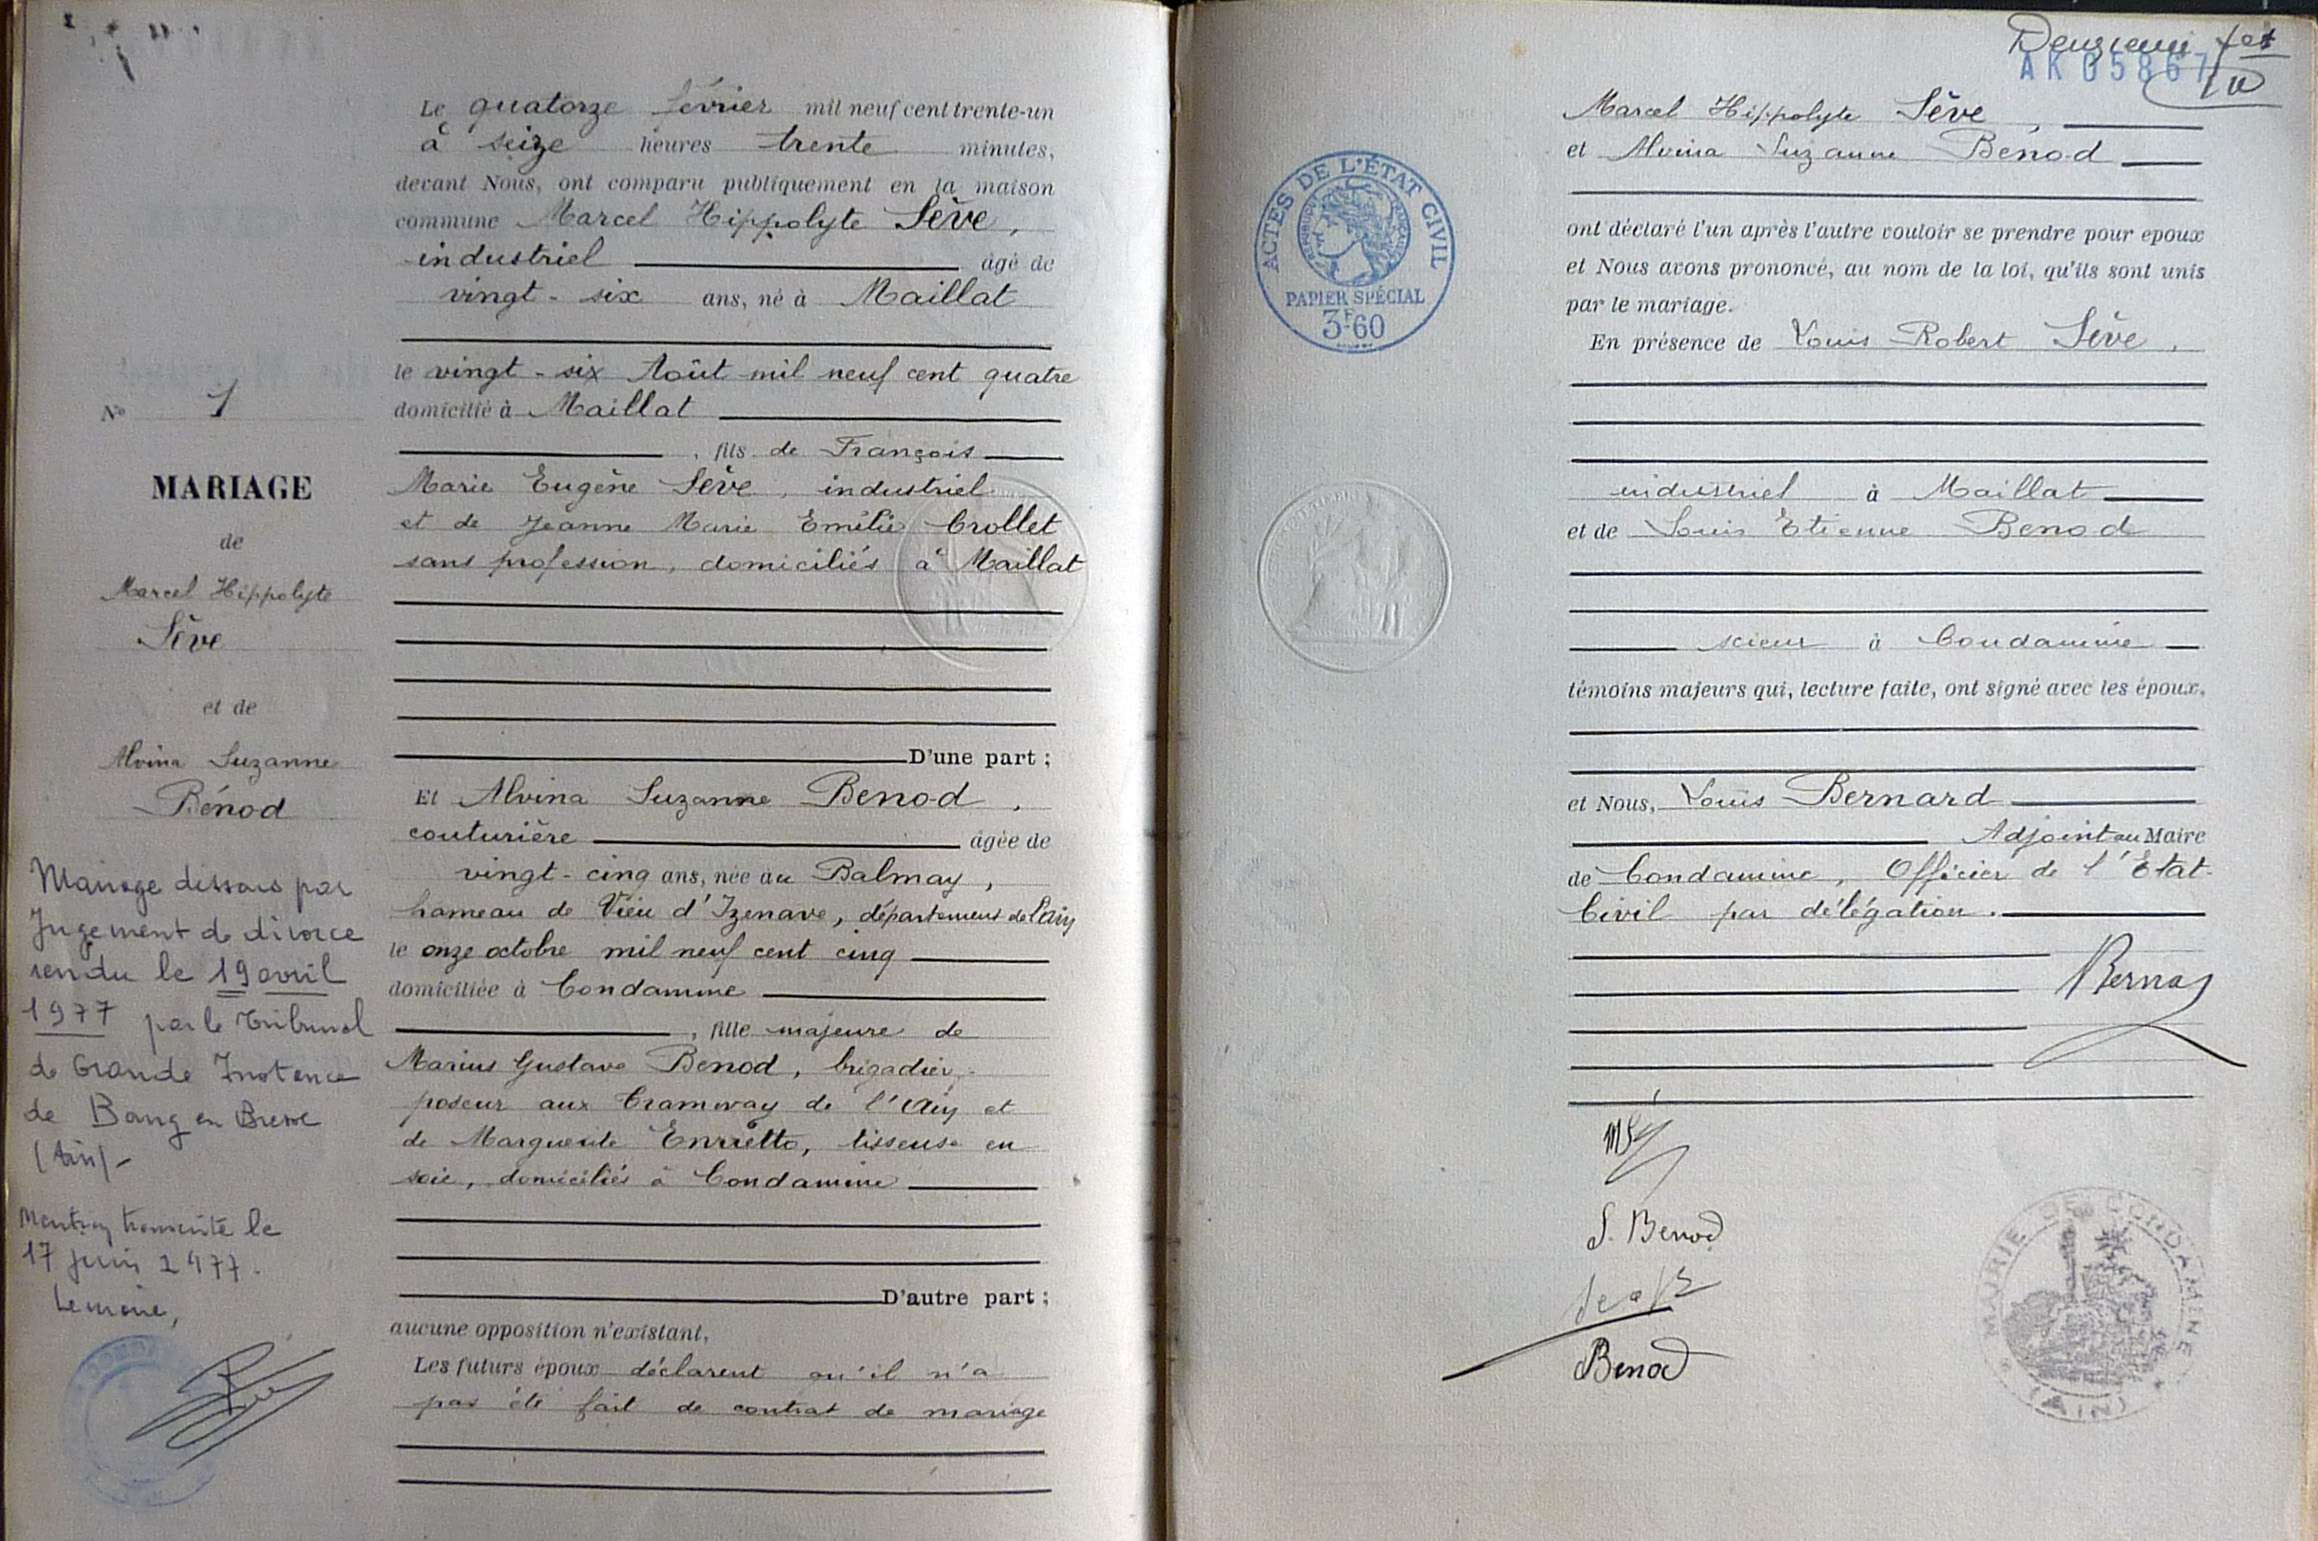 Le quatorze février mil neuf cent trente-un
à seize heures trente minutes,
devant Nous, ont comparu publiquement en la maison
commune Marcel Hippolyte Sève,
industriel âgé de
vingt-six ans, né à Maillat
le vingt-six Août mil neuf cent quatre
domicilié à Maillat
, fils de François
Marie Eugène Sève, industriel
et de Jeanne Marie Emélie Crollet
sans profession, domiciliés à Maillat
D'une part;
Et Alvina Suzanne Benod,
couturière âgée de
vingt-cinq ans, née au Balmay,
hameau de Vieu d'Izenave, département de l'Ain
le onze octobre mil neuf cent cinq
domiciliée à Condamine
, fille majeure de
Marius Gustave Benod, brigadier,
poseur aux Tramway de l'Ain et
de Marguerite Enrietto, tisseuse en
soie, domiciliés à Condamine
D'autre part;
aucune opposition n'existant,
Les futurs époux déclarent qu'il n'a
pas été fait de contrat de mariage
No 1
MARIAGE
de
Marcel Hippolyte
Sève
et de
Alvina Suzanne
Bénod
Mariage dissous par
Jugement de divorce
rendu le 19 avril
1977 par le Tribunal
de Grande Instance
de Bourg en Bresse
(Ain)-
Mention transcrite le
17 juin 1977.
Le maire,
Deuxième
AK 05867
Marcel Hippolyte Sève,
et Alvina Suzanne Benod
ont déclaré l'un après l'autre vouloir se prendre pour epoux
et Nous avons prononcé, au nom de la loi, qu'ils sont unis
par le mariage.
En présence de Louis Robert Sève,
industriel à Maillat
et de Louis Etienne Benod
scieur à Condamine
témoins majeurs qui, lecture faite, ont signé avec les époux,
et Nous, Louis Bernard
Adjoint au Maire
de Condamine, Officier de l'Etat-
Civil par délégation.
S. Benod
Benod
ACTES DE L'ÉTAT CIVIL
PAPIER SPÉCIAL
3F60
MAIRIE DE CONDAMINE
(AIN)